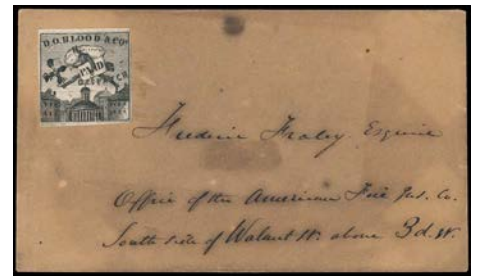 D.O. BLOOD & Co's
PAID
DESPATCH
Frederic Fraley Esquire
Office of the American Fire Ins. Co.
South side of Walnut St. above 3d. St.